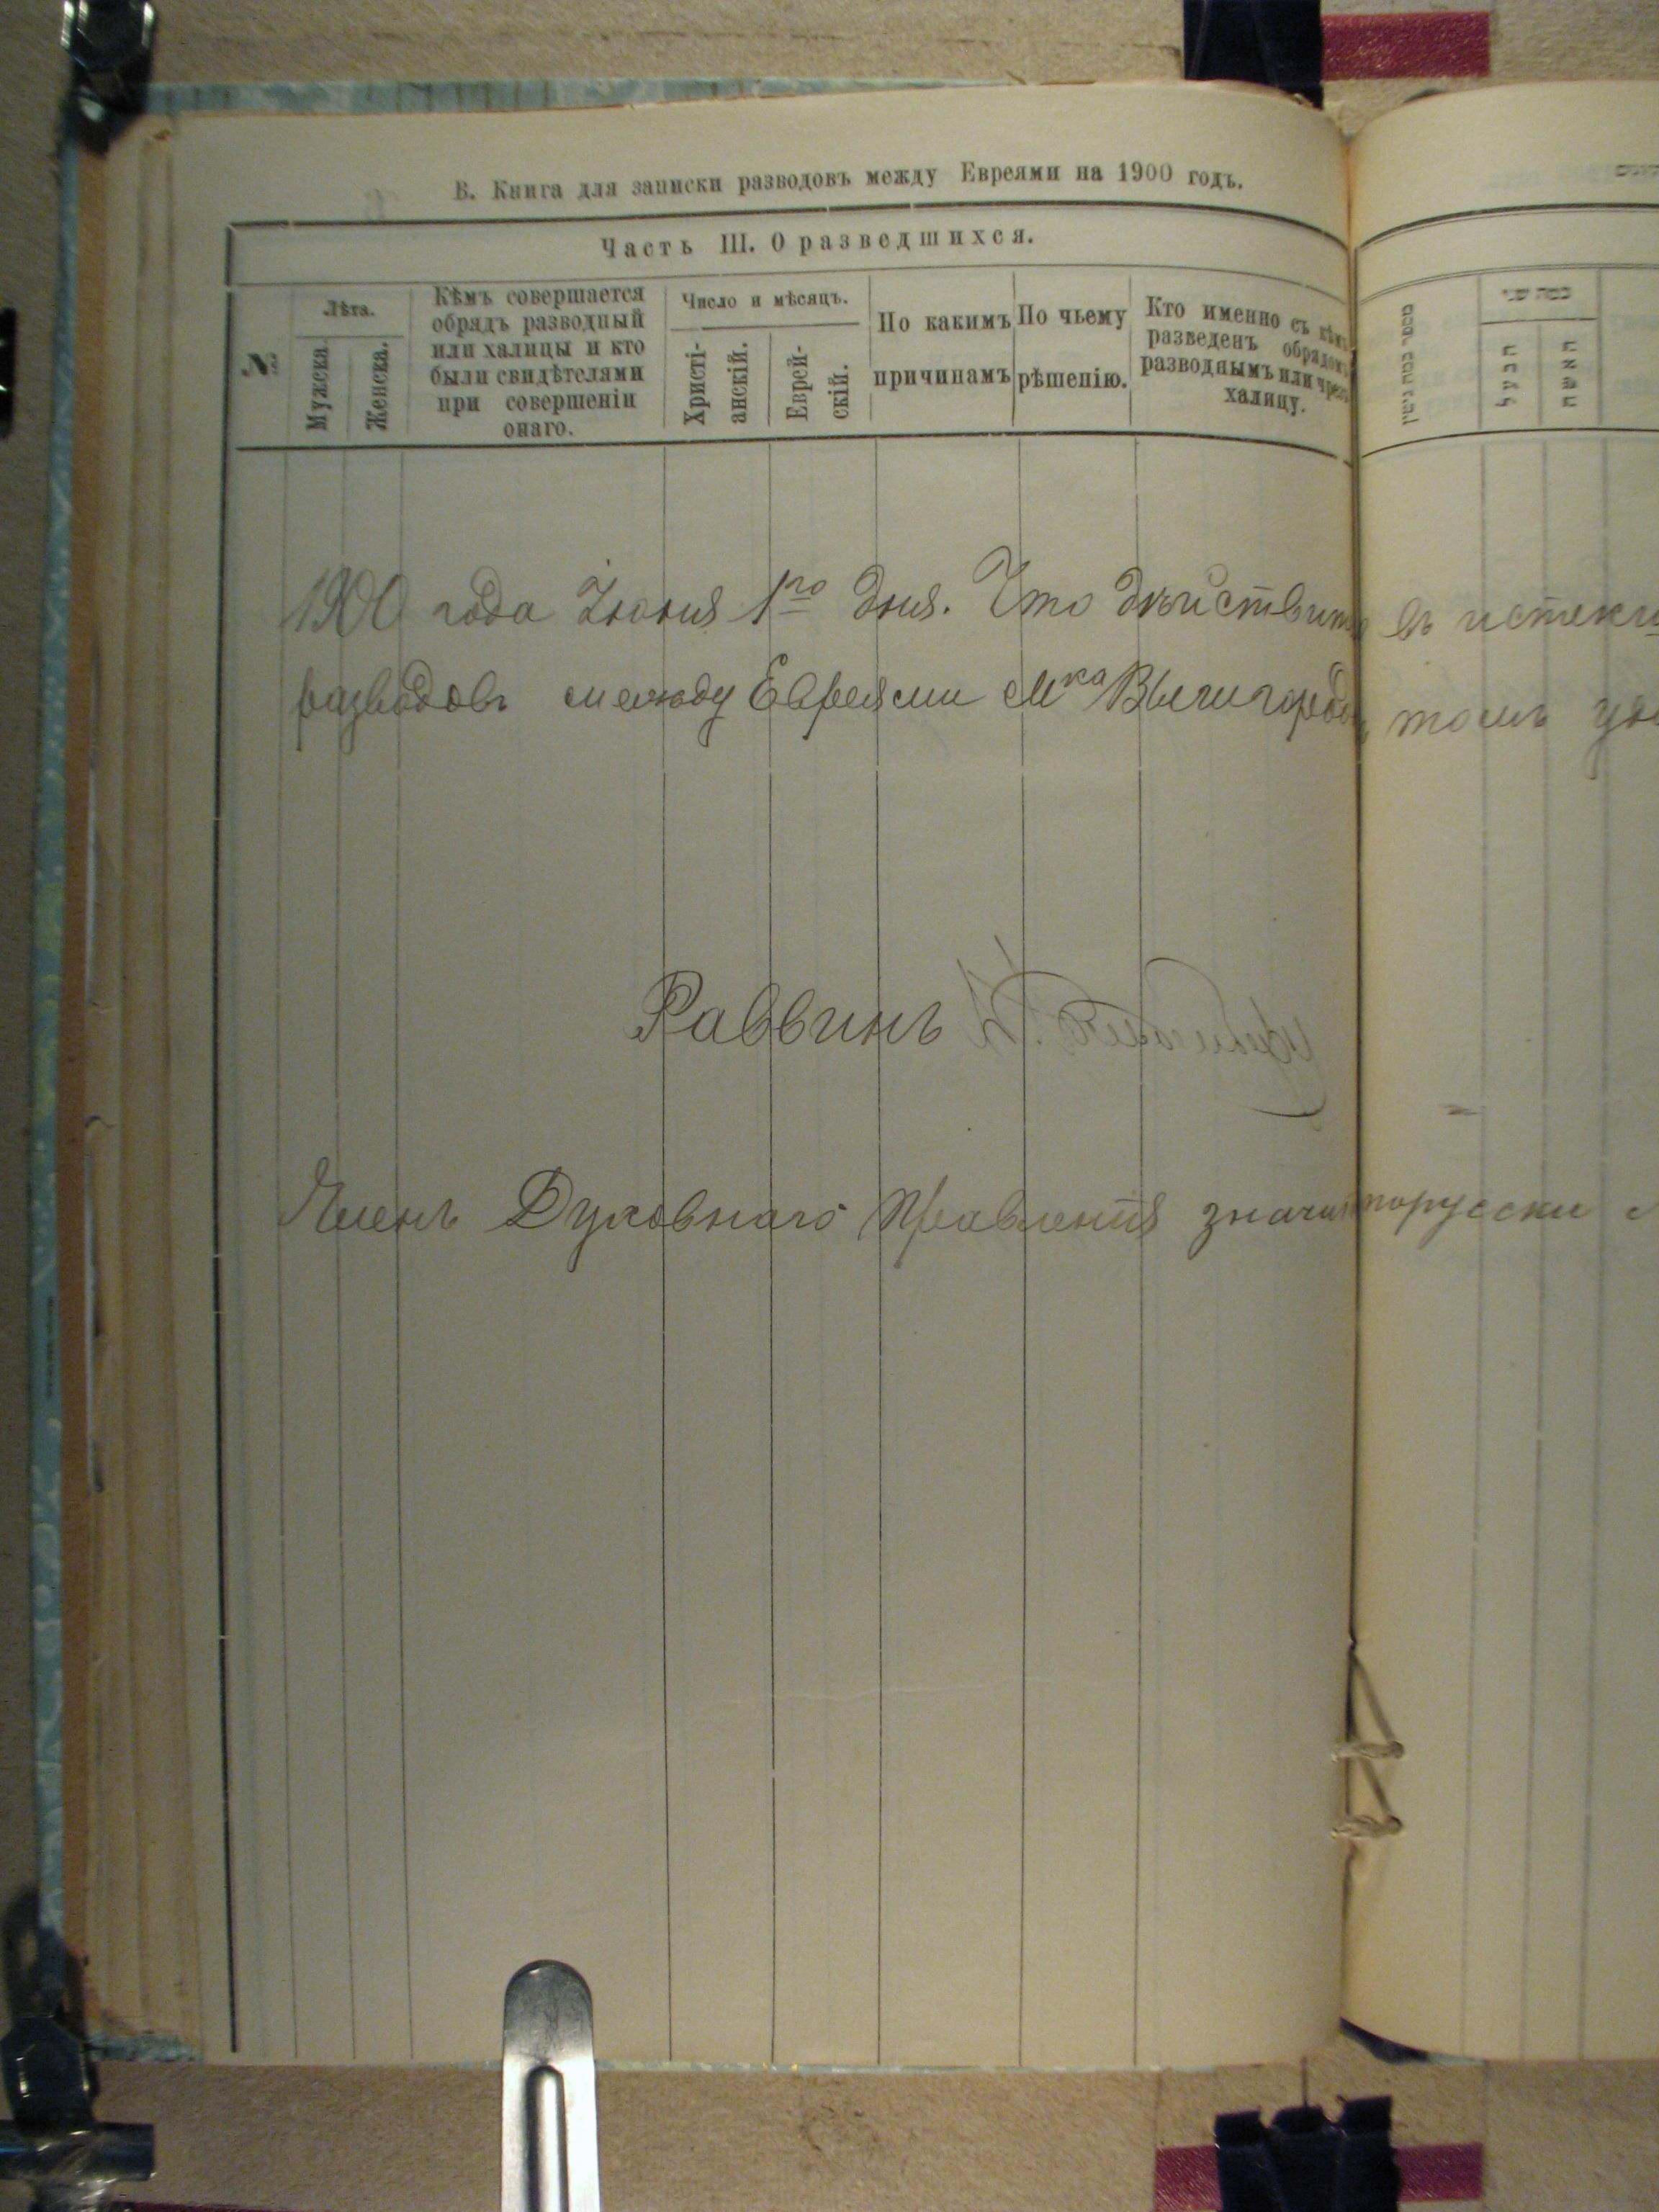 В. Книга для записки разводовъ между Евреями на 1900 годъ.
Часть III. О разведшихся.
№
Лѣта.
Мужска.
Женска.
Кѣмъ совершается
обрядъ разводный
или халицы и кто
были свидѣтелями
при совершеніи
онаго.
Число и мѣсяцъ.
Христі-
анскій.
Еврей-
скій.
По какимъ
причинамъ
По чьему
рѣшенію.
Кто именно съ кѣмъ
разведенъ обрядомъ
разводнымъ или чрезъ
халицу.
1900 года Іюня 1го дня. Что дѣйствит въ истекш
разводовъ между Евреями М-ка томъ удо
Раввинъ
Членъ Духовнаго Правленія значит порусски
כמה שני
הבעל
האשה